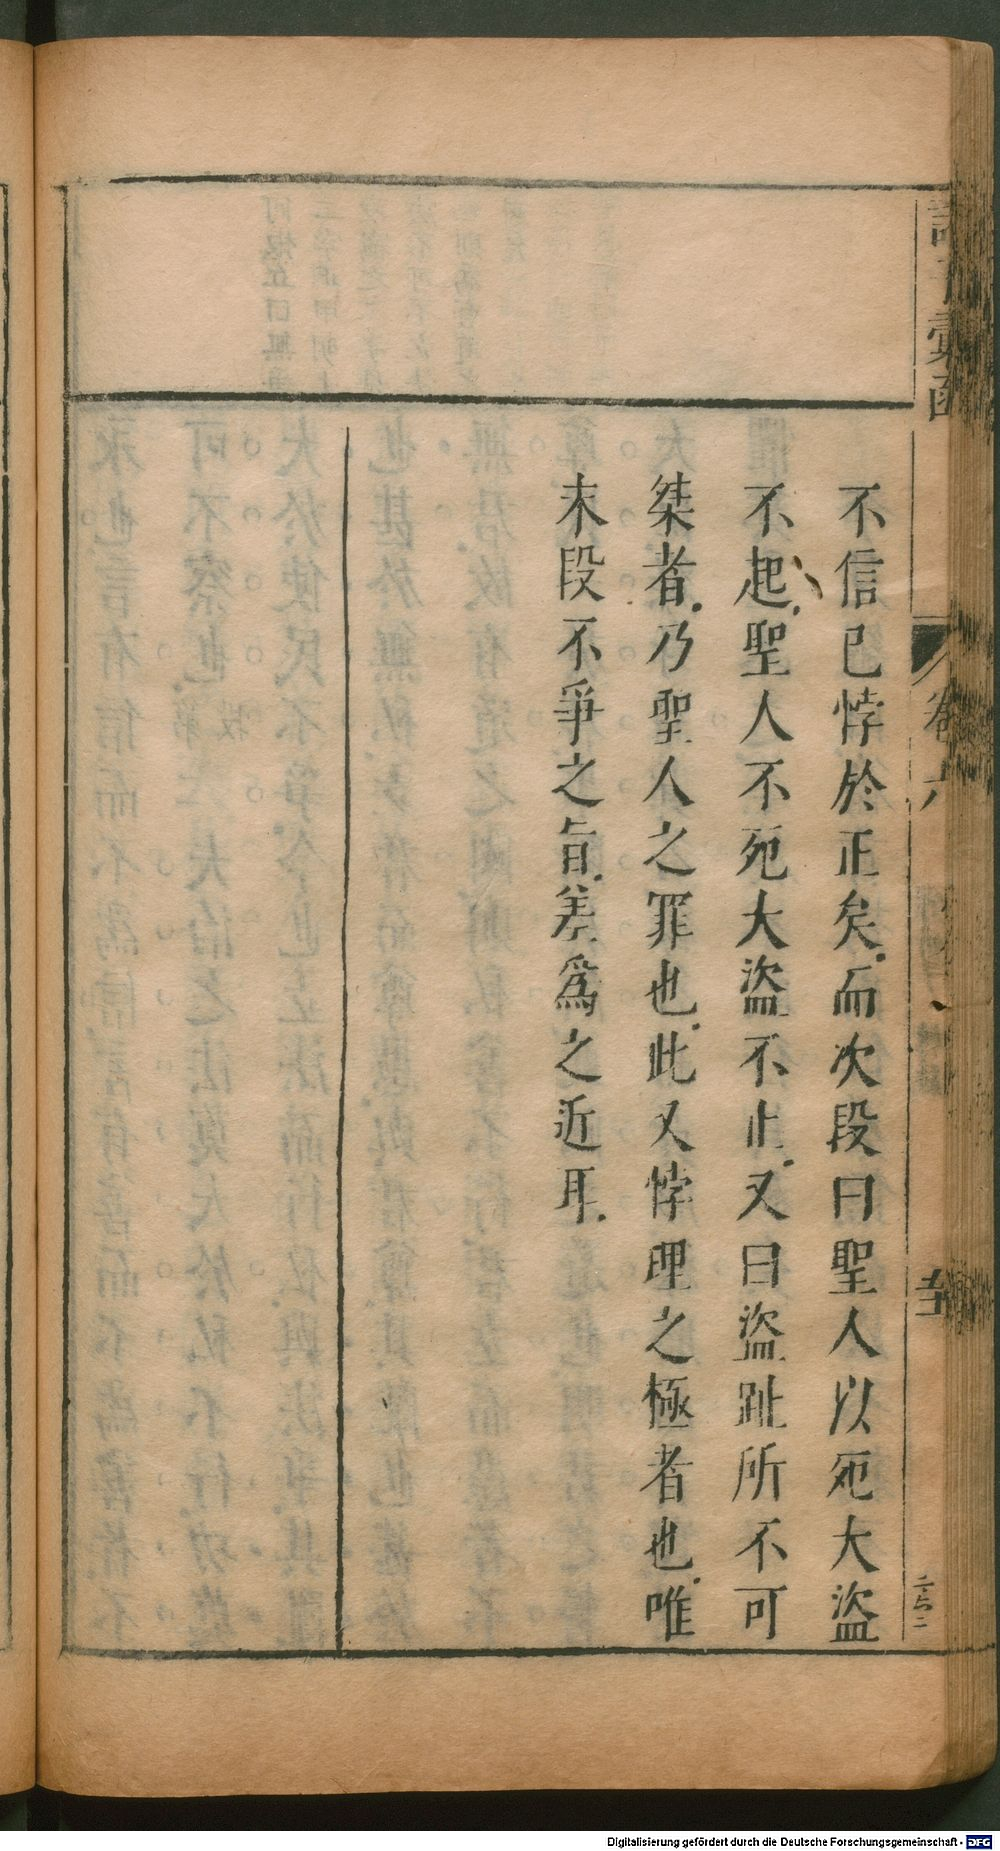 諸子彙函
卷六
不信已悖於正矣而次段曰聖人以死大盜
不起聖人不死大盜不止又曰盜趾所不可
桀者乃聖人之罪也此又悖理之極者也唯
末段不爭之旨差爲之近耳
Digitalisierung gefördert durch die Deutsche Forschungsgemeinschaft - DFG